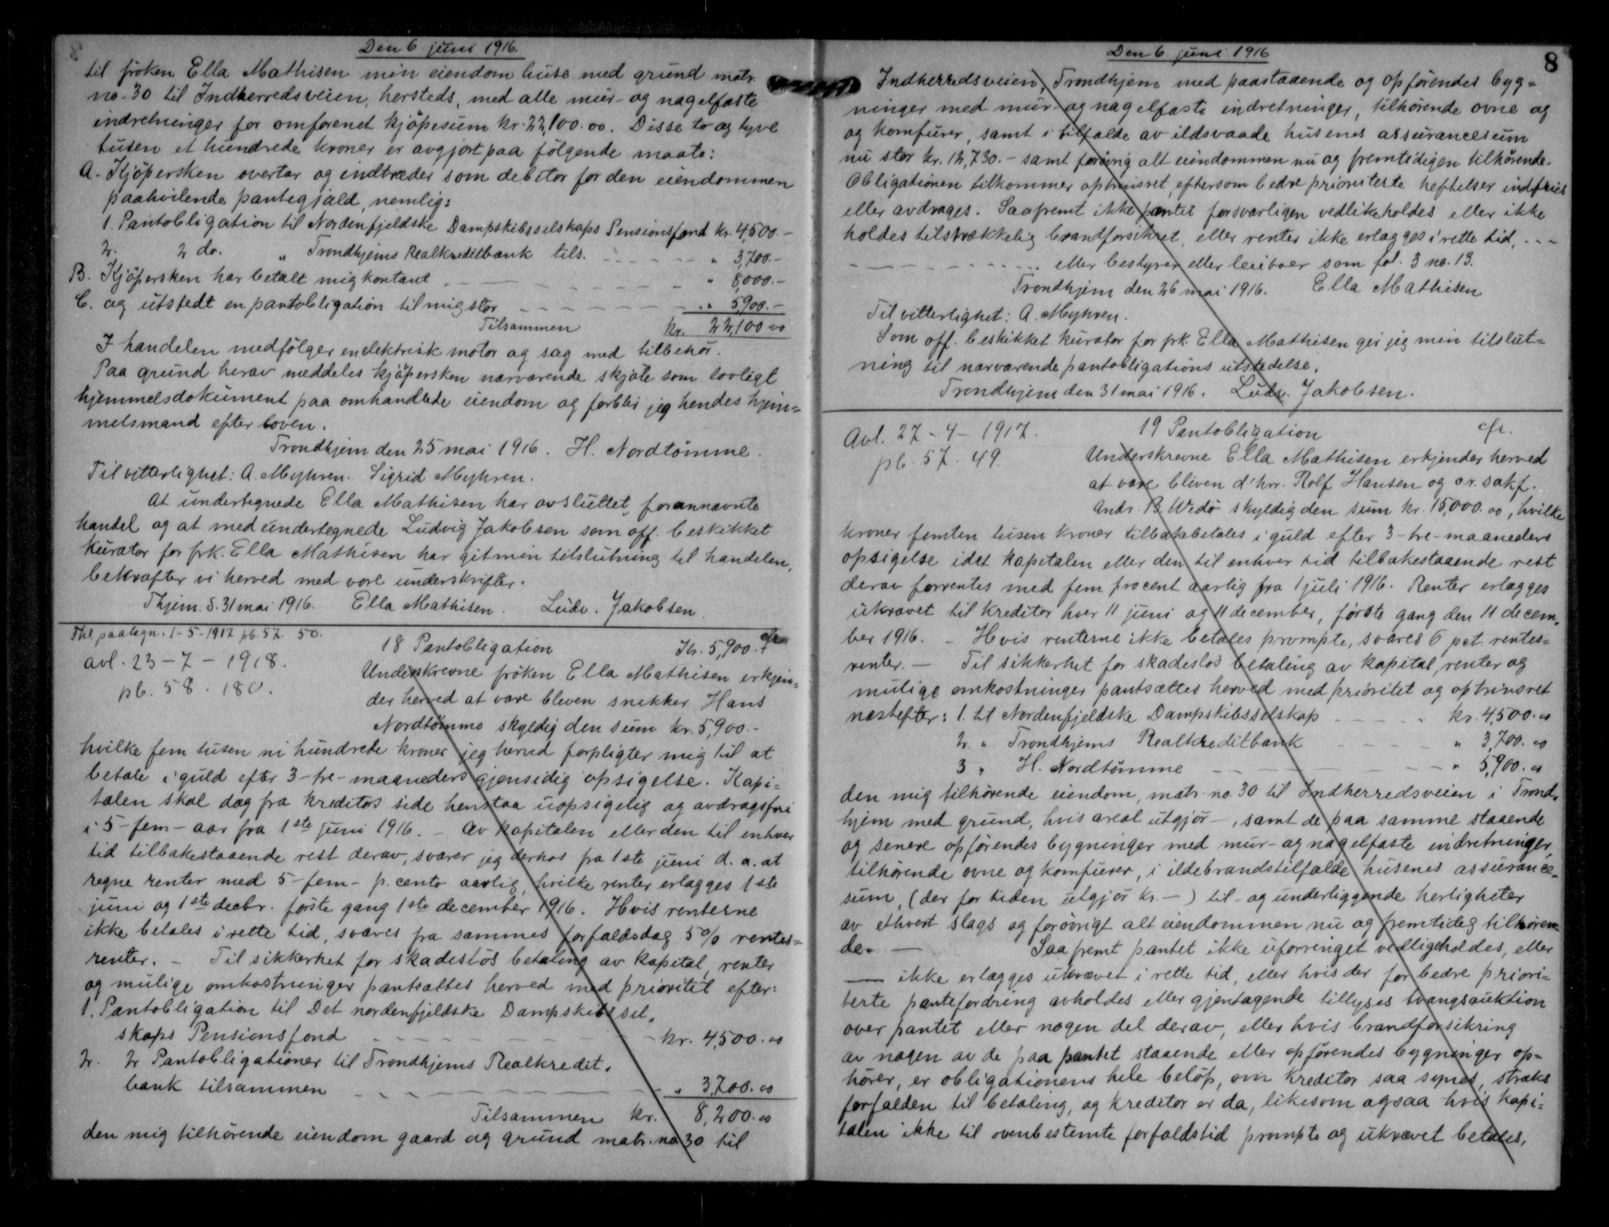 Den 6 juni 1916.
til fröken Ella Mathisen min eiendom huse med grund matr.
no. 30 til Indherredsveien, hersteds, med alle mur- og nagelfaste
indretninger for omforenet kjöpesum kr. 22,100.00. Disse to og tyve
tusen et hundrede kroner er avgjort paa følgende maate:
A. Kjöpersken overtar og indtræder som debitor for den eiendommen
paahvilende pantegjæld, nemlig:
1. Pantobligation til Nordenfjeldske Dampskibsselskaps Pensionsfond kr. 4,500.-
2. 2 do. " Trondhjems Realkreditbank tils. - - - - - " 3,700.-
B. Kjöpersken har betalt mig kontant - - - - - " 8,000.-
C. og utstedt en pantobligation til mig stor - - - - - " 5,900.-
Tilsammen kr. 22,100.00
I handelen medfölger en elektrisk motor og sag med tilbehör.
Paa grund herav meddeles kjöpersken nærværende skjöte som lovligt
hjemmelsdokument paa omhandlede eiendom og forblir jeg hendes hjem=
melsmand efter loven.
Trondhjem den 25 mai 1916. H. Nordtömme.
Til vitterlighet: A. Myhren. Sigrid Myhren.
At undertegnede Ella Mathisen har avsluttet forannævnte
handel og at med undertegnede Ludvig Jakobsen som off. beskikket
kurator for frk. Ella Mathisen har git min tilslutning til handelen,
bekræfter vi herved med vore underskrifter.
Thjem. d. 31 mai 1916. Ella Mathisen. Ludv. Jakobsen.
Thl. paategn. 1-5-1917 pb. 57. 50.
18 Pantobligation Kr. 5,900.- cfr.
avl. 23-7-1918.
Underskrevne fröken Ella Mathisen erkjen=
pb. 58. 180.
der herved at være bleven snikker Hans
Nordtömme skyldig den sum kr. 5,900.-
hvilke fem tusen ni hundrede kroner jeg herved forpligter mig til at
betale i guld efter 3-tre-maaneders gjensidig opsigelse. Kapi=
talen skal dog fra kreditors side henstaa uopsigelig og avdragsfri
i 5-fem-aar fra 1ste juni 1916. - Av kapitalen eller den til enhver
tid tilbakestaaende rest derav, svarer jeg derhos fra 1ste juni d. a. at
regne renter med 5-fem- p. cento aarlig, hvilke renter erlægges 1ste
juni og 1ste decbr. förste gang 1ste december 1916. Hvis renterne
ikke betales i rette tid, svares fra sammes forfaldsdag 5% rentes=
renter. - Til sikkerhet for skadeslös betaling av kapital, renter
og mulige omkostninger pantsættes herved med prioritet efter:
1. Pantobligation til Det nordenfjeldske Dampskibssel=
skaps Pensionsfond - - - - - kr. 4,500.00
2. 2 Pantobligationer til Trondhjems Realkredit=
bank tilsammen - - - - - " 3,700.00
Tilsammen kr. 8,200.00
den mig tilhørende eiendom gaard og grund matr. no. 30 til
Den 6 juni 1916
8
Indherredsveien, Trondhjem med paastaaende og opförendes byg=
ninger med mur- og nagelfaste indretninger, tilhørende ovne og
og komfurer, samt i tilfælde av ildsvaade husenes assurancesum
nu stor kr. 12,730.- samt forövrig alt eiendommen nu og fremtidigen tilhørende.
Obligationen tilkommer optrinsret, eftersom bedre prioriterte heftelser indfries
eller avdrages. Saafremt ikke pantet forsvarligen vedlikeholdes eller ikke
holdes tilstrækkelig brandforsikret, eller renter ikke erlægges i rette tid, - - -
- - - - - eller bestyrer eller leieboer som fol. 3 no. 13.
Trondhjem den 26 mai 1916. Ella Mathisen
Til vitterlighet: A. Myhren.
Som off. beskikket kurator for frk. Ella Mathisen gir jeg min tilslut=
ning til nærværende pantobligations utstedelse.
Trondhjem den 31 mai 1916. Ludv. Jakobsen.
Avl. 27-4-1917. 19 Pantobligation cfr.
pb. 57. 49.
Underskrevne Ella Mathisen erkjender herved
at være bleven d'hrr. Rolf Hansen og o.r. sakf.
Andr. B. Wrdö skyldig den sum kr. 15,000.00, hvilke
kroner femten tusen kroner tilbakebetales i guld efter 3-tre-maaneders
opsigelse idet kapitalen eller den til enhver tid tilbakestaaende rest
derav forrentes med fem procent aarlig fra 1 juli 1916. Renter erlægges
ukrævet til kreditor hver 11 juni og 11 december, förste gang den 11 decem=
ber 1916. - Hvis renterne ikke betales prompte, svares 6 pct. rentes=
renter. - Til sikkerhet for skadeslös betaling av kapital, renter og
mulige omkostninger pantsættes herved med prioritet og optrinsret
næstefter: 1. til Nordenfjeldske Dampskibsselskap - - - - kr. 4,500.00
2. " Trondhjems Realkreditbank - - - - " 3,700.00
3 " H. Nordtömme - - - - " 5,900.00
den mig tilhørende eiendom, matr. no. 30 til Indherredsveien i Trond=
hjem med grund, hvis areal utgjör -, samt de paa samme staaende
og senere opförendes bygninger med mur- og nagelfaste indretninger,
tilhørende ovne og komfurer, i ildebrandstilfælde husenes assurance=
sum, (der for tiden utgjör kr. -) til- og underliggende herligheter
av ethvert slags og forövrigt alt eiendommen nu og fremtideg tilhøren=
de. - Saafremt pantet ikke uforringet vedligeholdes, eller
- ikke erlægges ukrævet i rette tid, eller hvis der for bedre priori=
terte pantefordring avholdes eller gjentagende tillyses tvangsauktion
over pantet eller nogen del derav, eller hvis brandforsikring
av nogen av de paa pantet staaende eller opförendes bygninger op=
hører, er obligationens hele belöp, om kreditor saa synes, straks
forfalden til betaling, og kreditor er da, likesom ogsaa hvis kapi=
talen ikke til ovenbestemte forfaldstid prompte og ukrævet betales,